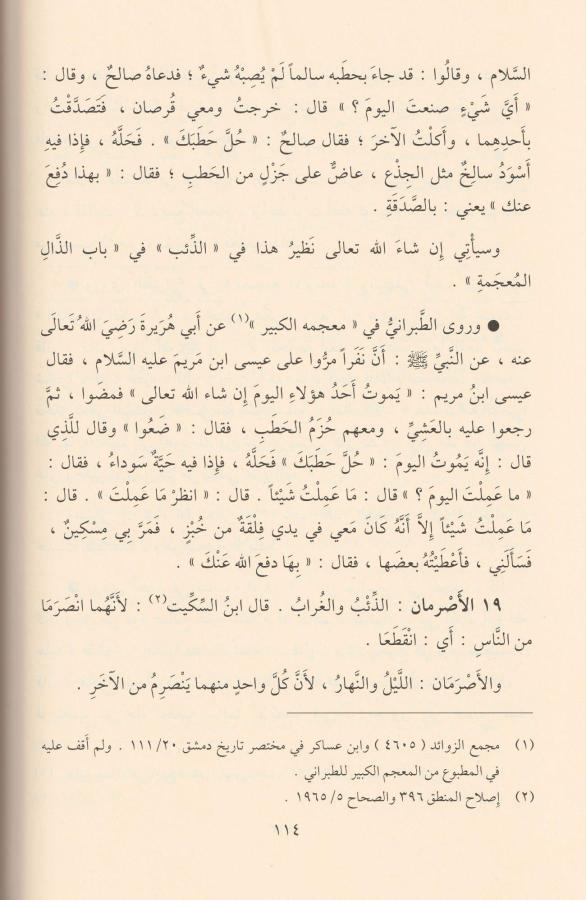 السَّلام ، وقالُوا : قد جاءَ بحطَبه سالماً لَمْ يُصِبْهُ شيءٌ ؛ فدعاهُ صالحٌ ، وقال :
« أَيَّ شَيْءٍ صنعتَ اليومَ ؟ » قال : خرجتُ ومعي قُرصان ، فَتَصَدَّقْتُ
بأَحدِهِما ، وأَكلْتُ الآخرَ ؛ فقال صالحٌ : « حُلَّ حَطَبَكَ » . فَحَلَّهُ ، فإِذا فيهِ
أَسْوَدُ سالِخٌ مثل الجِذْع ، عاضٌّ على جَزْلٍ من الحَطبِ ؛ فقال : « بهذا دُفِعَ
عنك » يعني : بالصَّدَقَةِ .
وسيأْتِي إِن شاءَ الله تعالى نَظيرُ هذا في « الذِّئب » في « باب الذَّالِ
المُعجَمةِ » .
● وروى الطَّبرانيُّ في « معجمه الكبير »(١) عن أَبي هُرَيرةَ رَضِيَ اللهُ تَعالَى
عنه ، عن النَّبيِّ ﷺ : أَنَّ نَفَراً مرُّوا على عيسى ابن مَريمَ عليه السَّلام ، فقال
عيسى ابنُ مريم : « يَموتُ أَحَدُ هؤلاءِ اليومَ إِن شاء الله تعالى » فمضَوا ، ثمَّ
رجعوا عليه بالعَشِيِّ ، ومعهم حُزَمُ الحَطَبِ ، فقال : « ضَعُوا » وقال للَّذِي
قال : إِنَّه يَمُوتُ اليومَ : « حُلَّ حَطَبَكَ » فَحَلَّهُ ، فإِذا فيه حَيَّةٌ سَوداءُ ، فقال :
« ما عَمِلْتَ اليومَ ؟ » قال : مَا عَمِلْتُ شَيْئاً . قال : « انظرْ مَا عَمِلْتَ » . قال :
مَا عَمِلْتُ شَيْئاً إِلاَّ أَنَّهُ كَانَ مَعي في يدي فِلْقَةٌ من خُبْزٍ ، فَمَرَّ بِي مِسْكينٌ ،
فَسَأَلَنِي ، فأَعْطَيْتُهُ بعضَها ، فقال : « بِهَا دفعَ الله عَنْكَ » .
١٩ الأَصْرمان : الذِّئْبُ والغُرابُ . قال ابنُ السِّكِّيت(٢) : لأَنَّهُما انْصَرَمَا
من النَّاسِ : أَي : انْقَطَعَا .
والأَصْرَمَان : اللَّيْلُ والنَّهارُ ، لأَنَّ كُلَّ واحدٍ منهما يَنْصَرِمُ من الآخَرِ .
(١) مجمع الزوائد ( ٤٦٠٥ ) وابن عساكر في مختصر تاريخ دمشق ٢٠/ ١١١ . ولم أَقف عليه
في المطبوع من المعجم الكبير للطبراني .
(٢) إِصلاح المنطق ٣٩٦ والصحاح ٥/ ١٩٦٥ .
١١٤